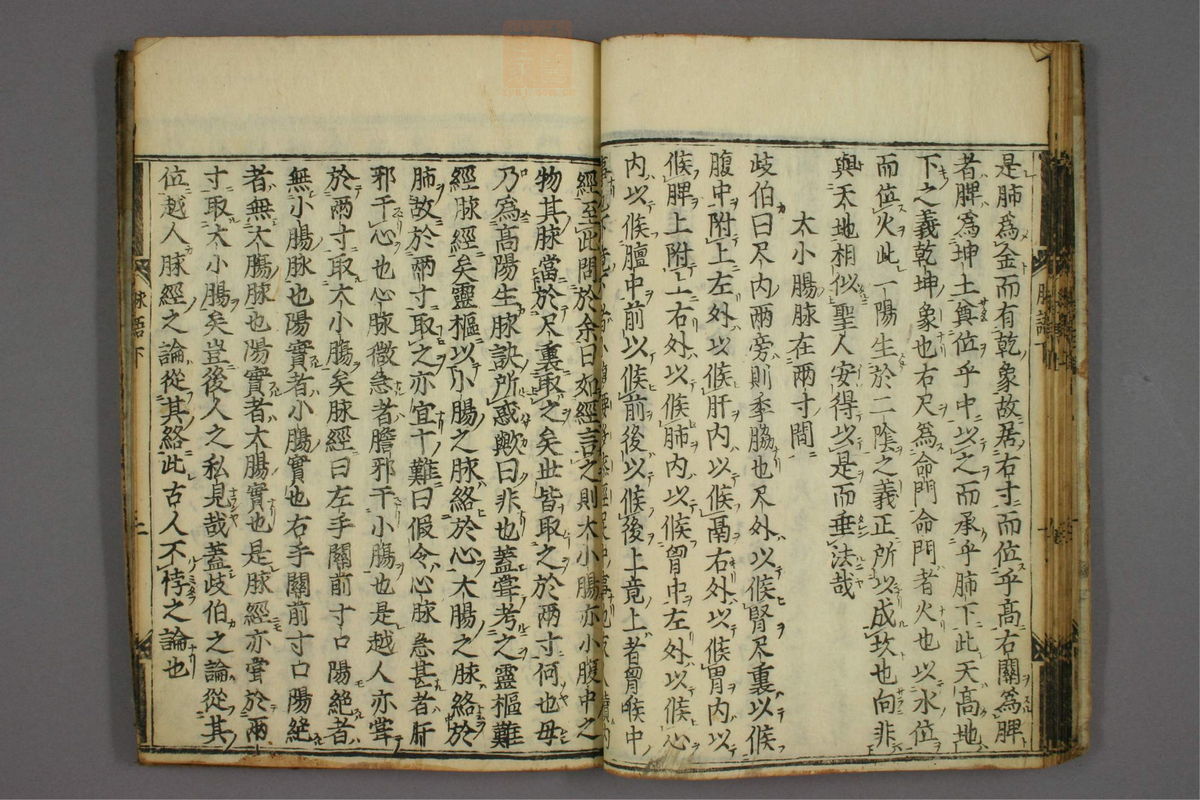 是肺爲金而有乾象故居右寸而位乎高右關爲脾
者脾爲坤土奠位乎中以之而承乎肺下此天高地
下之義乾坤象也右尺爲命門命門者火也以水位
而位火此一陽生於二陰之義正所以成坎也向非
與天地相似聖人安得以是而垂法哉
太小腸脉在兩寸間
歧伯曰尺内兩旁則季脇也尺外以候腎尺裏以候
腹中附上左外以候肝内以候鬲右外以候胃内以
候脾上附上右外以候肺内以候胷中左外以候心
内以候膻中前以候前後以候後上竟上者胷喉中
經至此問於余曰如經言之則太小腸亦小腹中之
物其脉當於尺裏取之矣世皆取之於兩寸何也毋
乃爲高陽生脉訣所惑歟曰非也蓋嘗考之靈樞難
經脉經矣靈樞以小腸之脉絡於心大腸之脉絡於
肺故於兩寸取之亦宜十難曰假令心脉急甚者肝
邪干心也心脉微急者膽邪干小腸也是越人亦嘗
於兩寸取太小腸矣脉經曰左手關前寸口陽絶者
無小腸脉也陽實者小腸實也右手關前寸口陽絶
者無太腸脉也陽實者太腸實也是脉經亦嘗於兩
寸取太小腸矣豈後人之私見哉蓋歧伯之論從其
位越人脉經之論從其絡此古人不悖之論也
脉語下
二